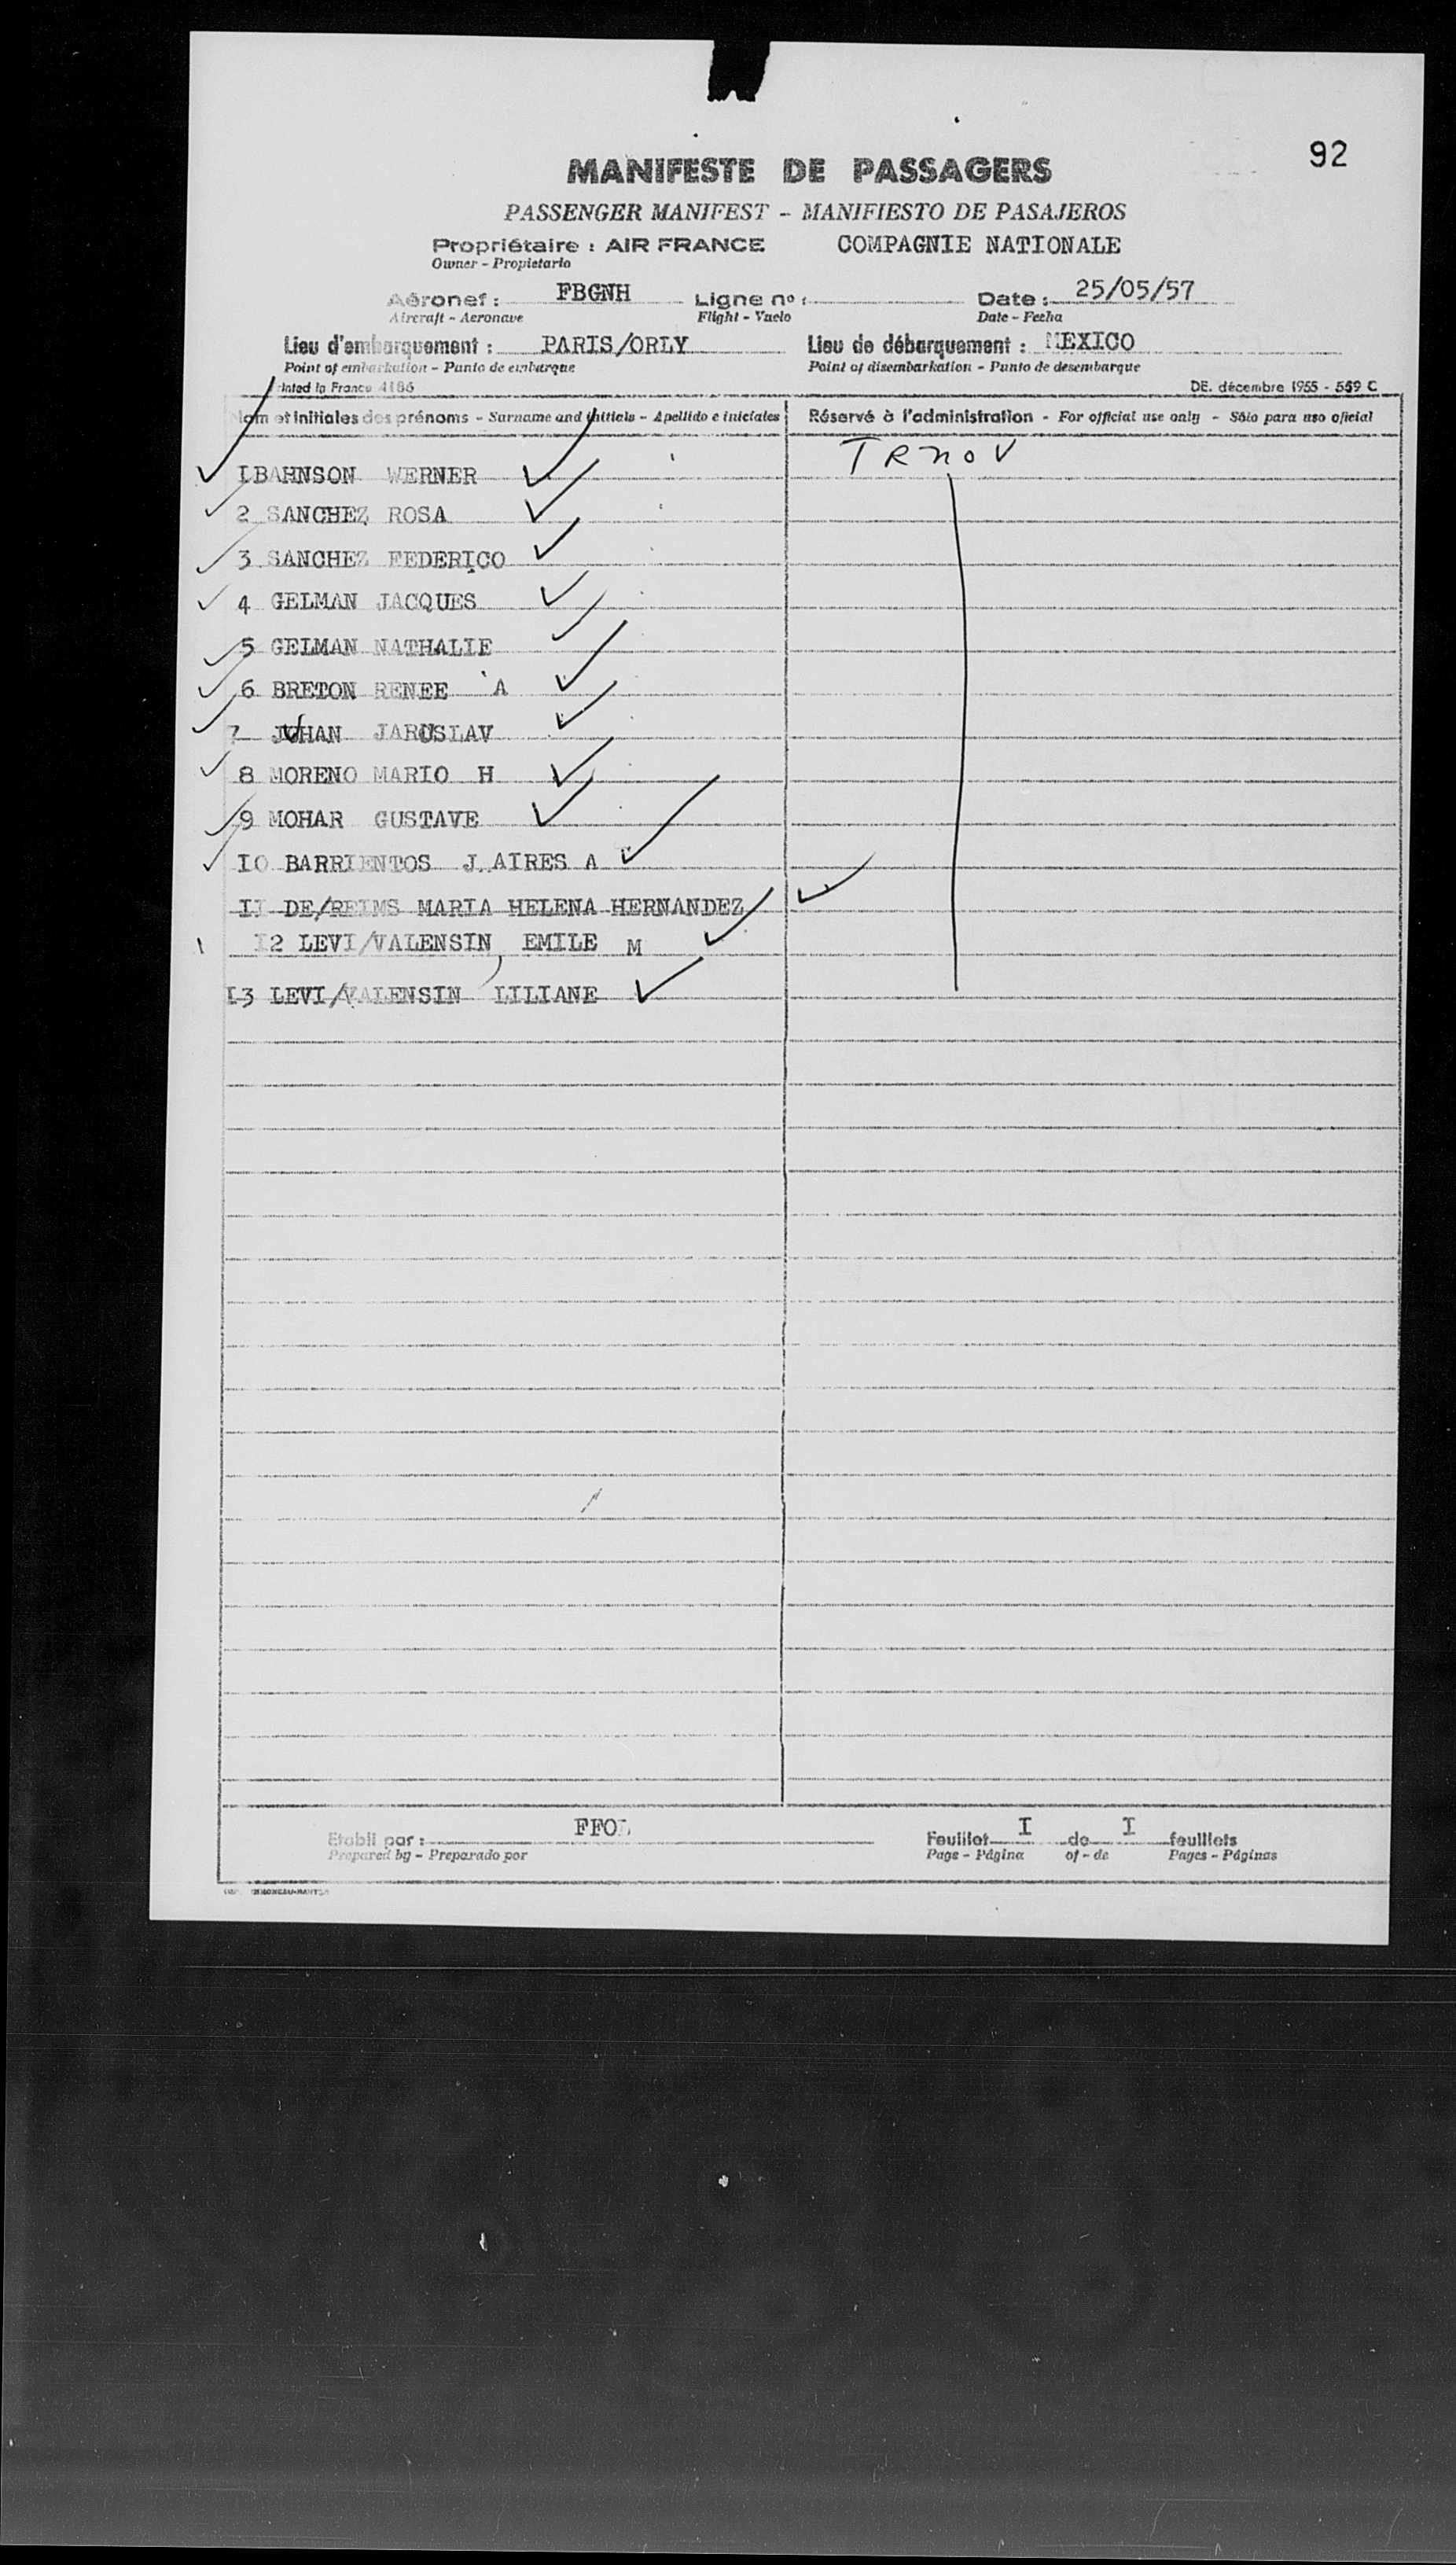 92
MANIFESTE DE PASSAGERS
PASSENGER MANIFEST - MANIFIESTO DE PASAJEROS
Propriétaire : AIR FRANCE COMPAGNIE NATIONALE
Owner - Propietario
Aéronef : FBGNH Ligne nº : Date : 25/05/57
Aircraft - Aeronave Flight - Vuelo Date - Fecha
Lieu d'embarquement : PARIS/ORLY Lieu de débarquement : MEXICO
Point of embarkation - Punto de embarque Point of disembarkation - Punto de desembarque
Printed in France 4186 DE. décembre 1955 - 559 C
Nom et initiales des prénoms - Surname and initials - Apellido e iniciales Réservé à l'administration - For official use only - Sólo para uso oficial
1 BAHNSON WERNER
2 SANCHEZ ROSA
3 SANCHEZ FEDERICO
4 GELMAN JACQUES
5 GELMAN NATHALIE
6 BRETON RENEE A
7 JUHAN JAROSLAV
8 MORENO MARIO H
9 MOHAR GUSTAVE
I0 BARRIENTOS J. AIRES A
II DE/REIMS MARIA HELENA HERNANDEZ
I2 LEVI/VALENSIN, EMILE M
I3 LEVI/VALENSIN LILIANE
Etabli par : Feuillet I de I feuillets
Prepared by - Preparado por Page - Página of - de Pages - Páginas